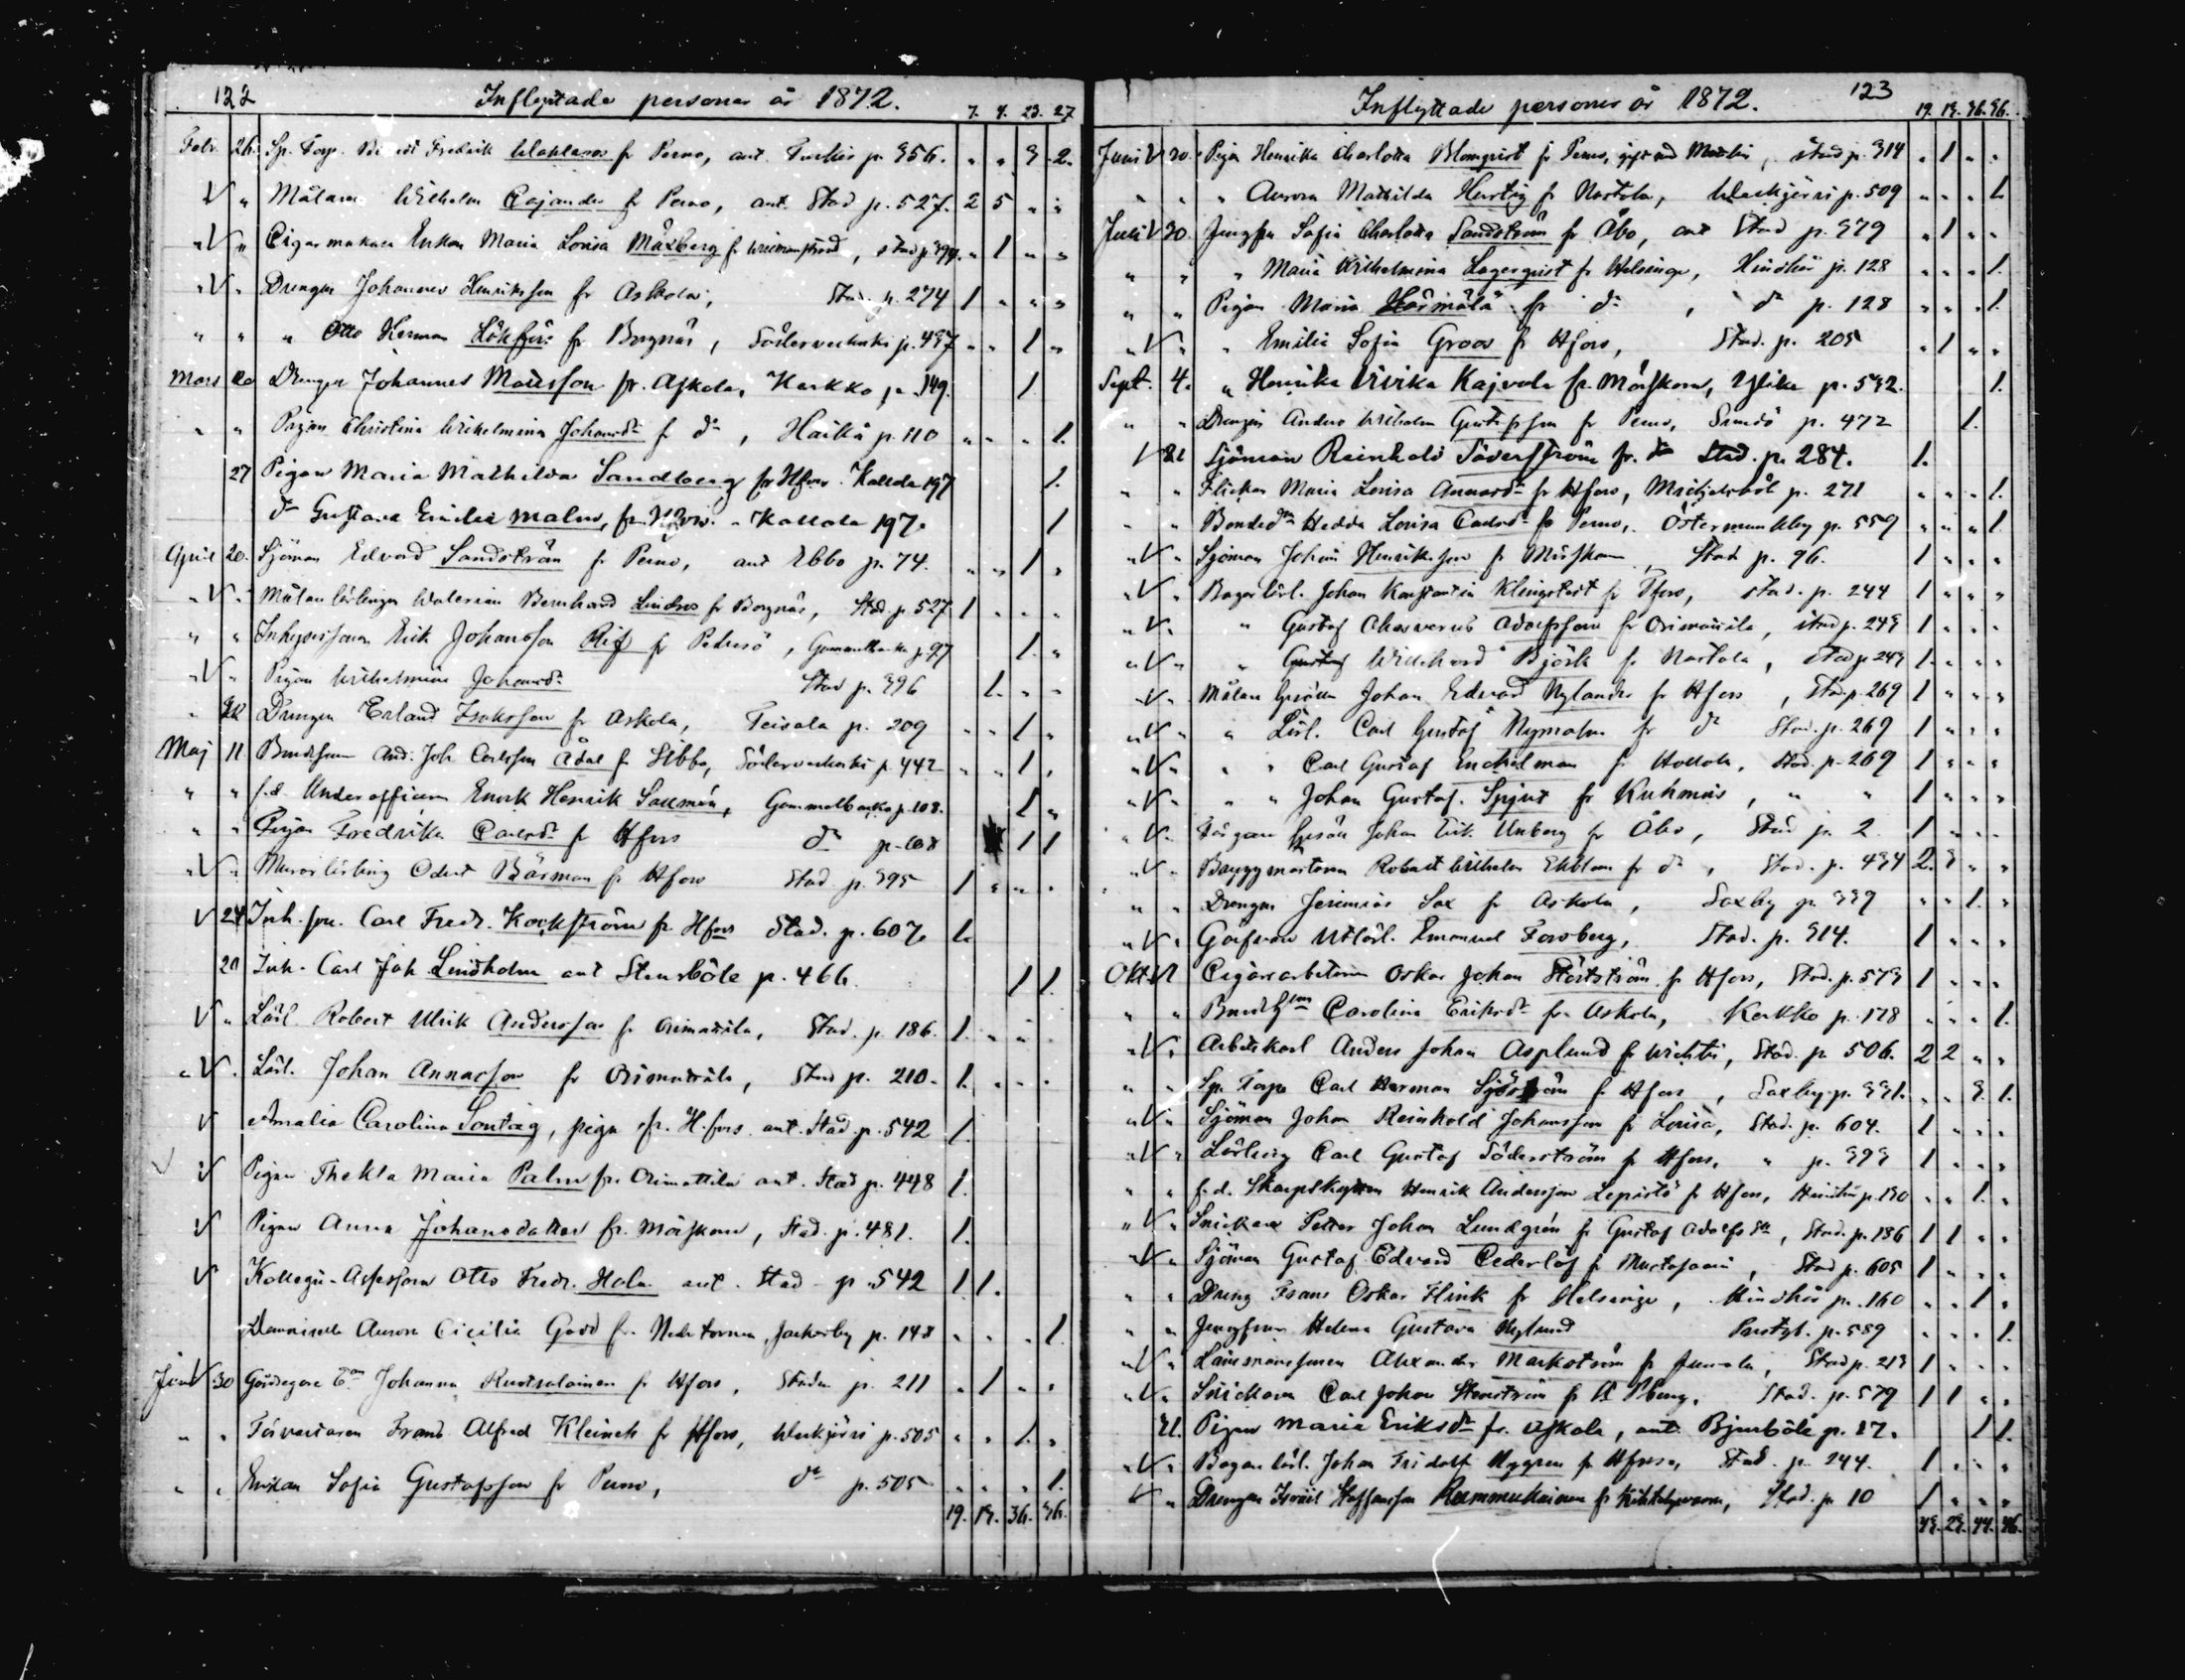 122 Inflyttade personer år 1872. 7. 8. 23. 27
Febr. 26. Sp. Torp. Fredrik Wahlman fr Perno, ant. p. 356. " " 3 2.
V " Målaren Wilhelm Cajander fr Perno, ant. Stad p. 527. 2 5 " "
" V " Cigarmakare Enkan Maria Lovisa Måxberg fr Wilmanstrand, stad p. 394. " 1 " "
" V " Drengen Johannes Henriksson fr Askola, Stad p. 274 1 " " "
" " " Otto Herman Lökfors fr Borgnäs, Söderveckoski p. 437 " " 1 "
Mars 20 Drengen Johannes Mausson fr. Askola, Karkko p. 149. 1.
" " Pigan Christina Wilhelmina Johansdr f do, Haikå p. 110 " " " 1.
27 Pigan Maria Mathilda Sandberg fr Hfors. Kallola 197 1.
do Gustava Emilia Malm, fr. Hfors. " Kallola 197. 1
April 20. Sjöman Edvard Sandström fr Perno, ant Ebbo p. 74. " " 1 "
" V " Målarlärlingen Walerian Bernhard Lindros fr Borgnäs, Stad. p. 527 1 " " "
" " Inhysessonen Erik Johansson Rif fr Pedersö, Gammelbacka p. 97 1. "
" V " Pigan Wilhelmina Johansdr Stad p. 396 1. " "
" Drengen Erland Isaksson fr Askola, Teisala p. 209 " " 1 "
Maj 11 Bondeson And. Joh Carlsson Ådal fr Sibbo, Söderveckoski p. 442 " " 1 "
" " f.d. Underofficern Enock Henrik Saxmén, Gammelbacka p. 108. 1 "
" " Pigan Fredrika Carlsdr fr Hfors do p. 108 1 1
" V " Murarlärling Odert Bärman fr Hfors Stad p. 395 1 " " "
V 24 Inh. son. Carl Fredr. Kockström fr Hfors Stad. p. 607. 1.
20 Inh. Carl Joh Lindholm ant Stensböle p. 466. 1 1.
V " Lärl. Robert Ulrik Andersson fr Orimattila, Stad. p. 186. 1. " " "
" V " Lärl. Johan Annasson fr Orimattila, Stad p. 210. 1. " " "
V Amalia Carolina Sontag, piga fr. H.fors. ant. Stad. p. 542 1.
V Pigan Thekla Maria Palm fr. Orimattila ant. Stad p. 448 1.
V Pigan Anna Johansdotter fr. Mörskom, Stad. p. 481. 1.
V Kollegii-Assessorn Otto Fredr. Holm ant. Stad p. 542 1 1.
Demoiselle Aurora Cicilia Gadd fr. Nedertorneå, Jackarby p. 148 " " " 1.
Juni V 30 Gårdegare Johanna Ruotsalainen fr Hfors, Staden p. 211 " 1 " "
" " Förvaltaren Frans Alfred Kleineh fr Hfors, Werkjärvi p. 505 " " 1. "
" " Enkan Sofia Gustafsson fr Perno, do p. 505 " " " 1.
19. 19. 36. 36.
Inflyttade personer år 1872. 123 19. 19. 36. 36.
Juni V 30. Pigan Henrika Charlotta Blomqvist fr Perno, gift med, stad p. 314 " 1 " "
" " " Aurora Mathilda Hertig fr Nastola, Werkjärvi p. 509 " " " 1.
Juli V 30. Jungfru Sofia Charlotta Sandström fr Åbo, ant Stad p. 379 " 1 " "
" " " Maria Wilhelmina Lagerqvist fr Helsinge, Hindhår p. 128 " " " 1.
" " Pigan Maria Härmälä fr do, do p. 128 " " " 1.
" V " " Emilia Sofia Groos fr Hfors, Stad. p. 205 " 1 " "
Sept. 4. " Henrika Vivika Kajvola fr. Mörskom, Ylike p. 532. 1.
" " Drengen Anders Wilhelm Gustafsson fr Perno, Sundö p. 472 1.
V 21 Sjöman Reinhold Söderström fr. do Stad. p. 284. 1.
" " Flickan Maria Lovisa Annasdr fr Hfors, Mickelsböl p. 271 " " " 1.
" " Bondedr Hedda Lovisa Carlsdr fr Perno, Östermunkby p. 559 " " " 1
" V " Sjöman Johan Henriksson fr Mörskom, Stad p. 96. 1 " " "
" V " Bagarlärl. Johan Konstantin Klingstedt fr Hfors, stad. p. 244 1 " " "
" V " " Gustaf Ahasverus Adolfsson fr Orimattila, stad p. 243 1 " " "
" V " " Gustaf Willehard Björk fr Nastola, stad p. 243 1. " " "
" V " Målare Gesällen Johan Edvard Nylander fr Hfors, Stad. p. 269 1 " " "
" V " " Lärl. Carl Gustaf Nymalm fr do Stad. p. 269 1 " " "
" V " " " Carl Gustaf Enckelman fr Hollola, Stad. p. 269 1 " " "
" V " " " Johan Gustaf Spjut fr Kuhmois, " " 1 " " "
" V " Färgare Gesällen Johan Erik Unberg fr Åbo, Stad p. 2 1 " " "
" V " Byggmästaren Robert Wilhelm Ekblom fr do, Stad. p. 434 2. 3 " "
" " Drengen Jeremias Sax fr Askola, Saxby p. 339 " " 1. "
" V " Garfvare Utlärl. Emanuel Forsberg, Stad. p. 314. 1 " " "
Okt. Cigarrarbetaren Oskar Johan Stertström fr Hfors, Stad. p. 573 1 " " "
" " Carolina Eriksdr fr Askola, Kerkko p. 178 " " " 1.
" V " Arbetskarl Anders Johan Asplund fr Wichtis, Stad. p. 506. 2 2 " "
" " Sp. Torp. Carl Herman Sjöström fr Hfors, Saxby p. 331. " " 3. 1.
" V " Sjöman Johan Reinhold Johansson fr Lovisa, Stad. p. 604. 1 " " "
" V " Lärling Carl Gustaf Söderström fr Hfors, " p. 393 1 " " "
" " f.d. Skarpskytten Henrik Andersson Lepistö fr Hfors, p. 130 " " 1. "
" V " Snickare Petter Johan Lundgrén fr Gustaf Adolfs, Stad. p. 186 1 1 " "
" V " Sjöman Gustaf Edvard Cederlöf fr Mustasaari, Stad p. 605 1 " " "
" " Dreng Frans Oskar Flink fr Helsinge, Hindhår p. 160 " " 1 "
" " Jungfrun Helena Gustava Nylund Prestgl. p. 589 " " " 1.
" V " Länsmanssonen Alexander Markström fr Jumala, Stad p. 213 1 " " "
" V " Snickaren Carl Johan Stenström fr, Stad. p. 579 1 1 " "
21. Pigan Maria Eriksdr fr. Askola, ant. Bjurböle p. 27. 1 1.
" V " Bagarlärl. Johan Fridolf Nygren fr Hfors, Stad. p. 244. 1 " " "
V " Drengen Israel Staffansson Rummukainen fr, Stad. p. 10 1 " " "
43. 29. 44. 46.